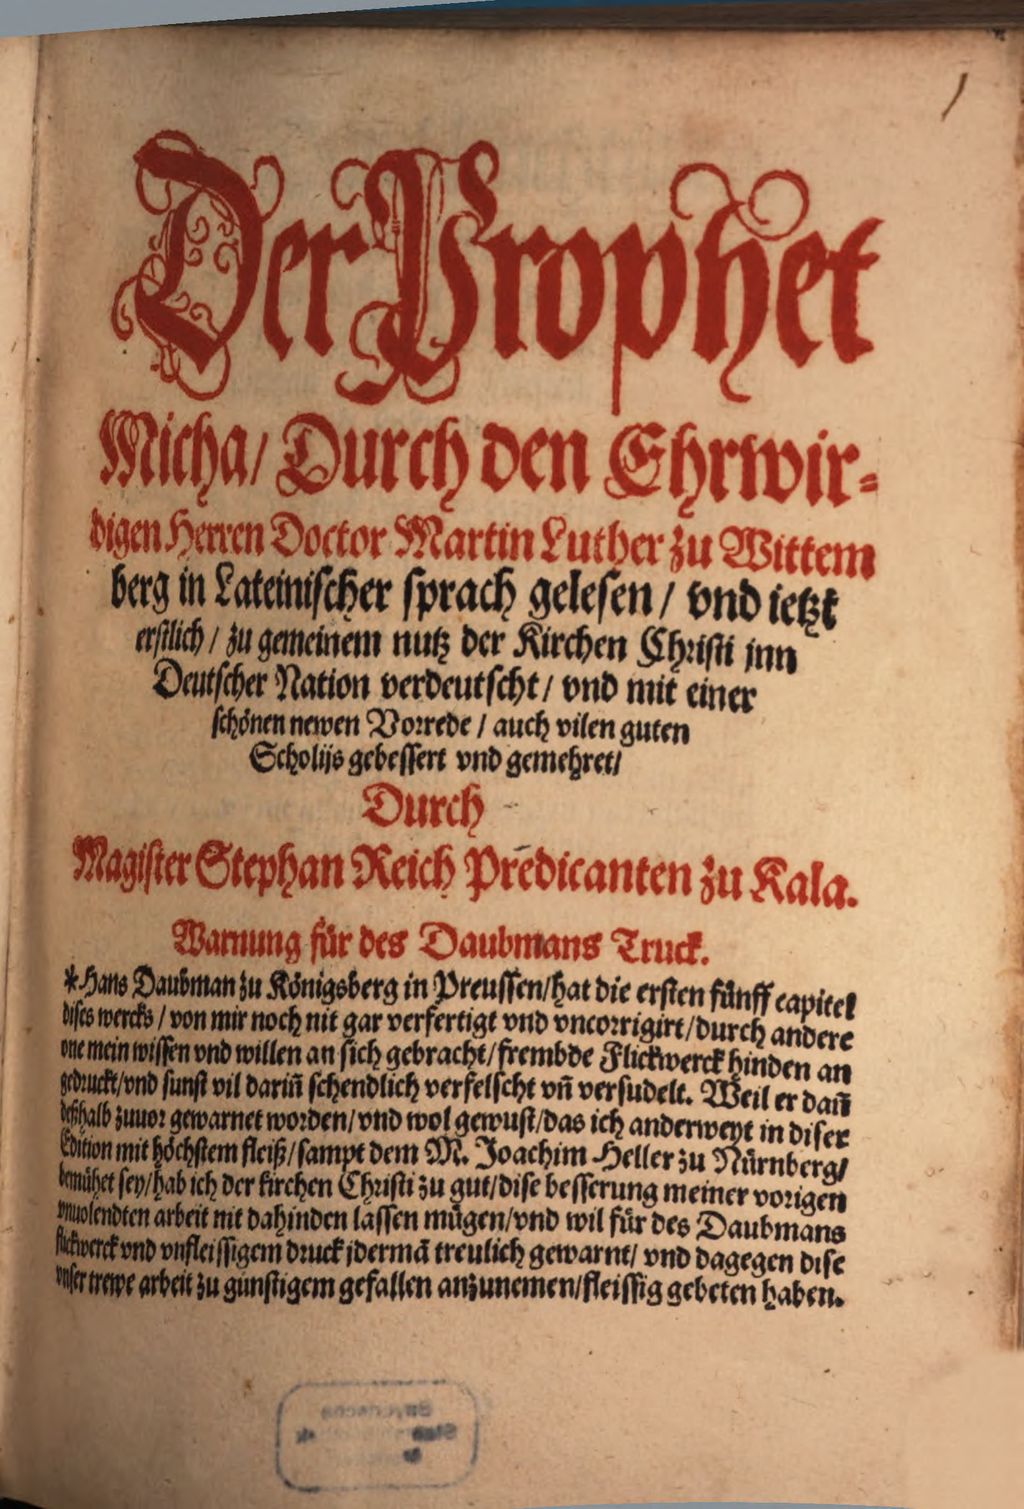 1
Der Prophet
Micha/ Durch den Ehrwir⸗
digen Herren Doctor Martin Luther zu Wittem
berg in Lateinischer sprach gelesen / vnd ietzt
erstlich / zu gemeinem nutz der Kirchen Christi inn
Deutscher Nation verdeutscht / vnd mit einer
schönen newen Vorrede / auch vilen guten
Scholijs gebessert vnd gemehret/
Durch
Magister Stephan Reich Predicanten zu Kala.
Warnung für des Daubmans Truck.
* Hans Daubman zu Königsberg in Preussen/hat die ersten fünff capitel
dises wercks / von mir noch nit gar verfertigt vnd vncorrigirt/durch andere
one mein wissen vnd willen an sich gebracht/frembde Flickwerck hinden an
gedruckt/vnd sunst vil dariñ schendlich verfelscht vñ versudelt. Weil er dañ
deßhalb zuuor gewarnet worden/vnd wol gewust/das ich anderweyt in diser
Edition mit höchstem fleiß/sampt dem M. Joachim Heller zu Nürnberg/
bemühet sey/hab ich der kirchen Christi zu gut/dise besserung meiner vorigen
vnuolendten arbeit nit dahinden lassen mügen/vnd wil für des Daubmans
flickwerck vnd vnfleissigem druck jdermā treulich gewarnt/ vnd dagegen dise
vnser trewe arbeit zu günstigem gefallen anzunemen/fleissig gebeten haben.